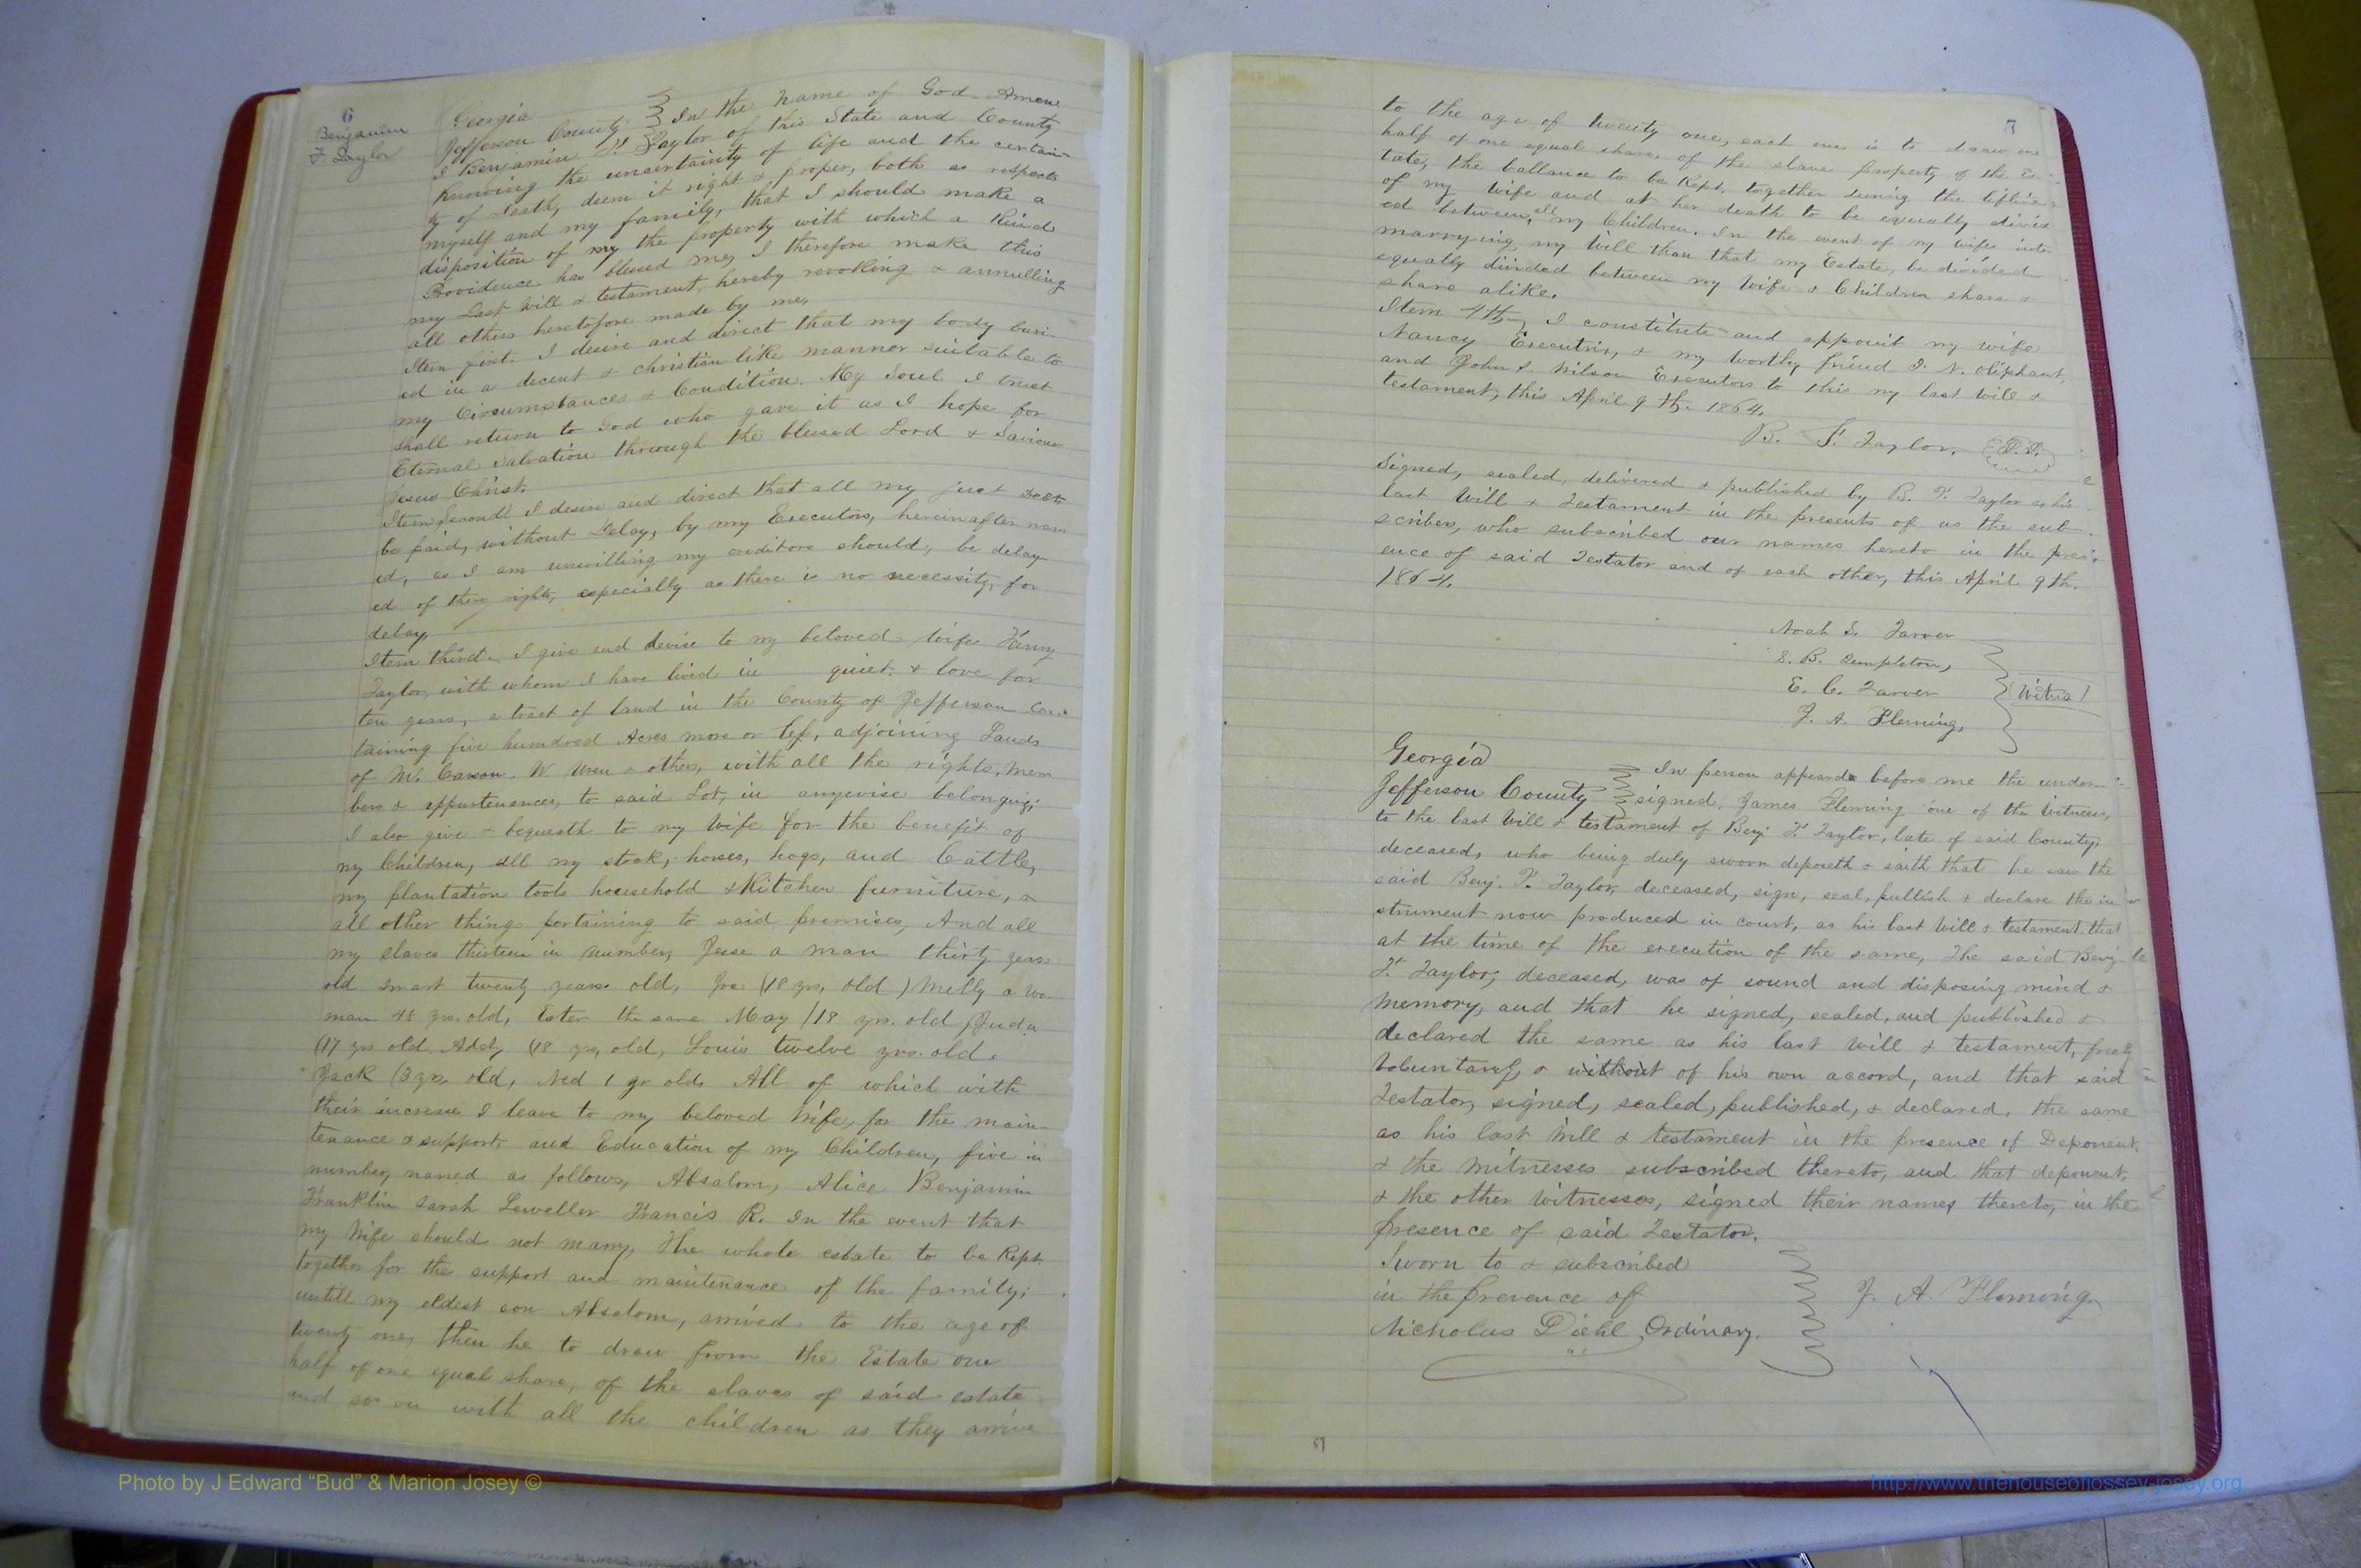 6
Benjamin
F. Taylor
Georgia
Jefferson County } In the name of God Amen
I Benjamin F. Taylor of this State and County
Knowing the uncertainty of life and the certain-
ty of Death, deem it right & proper, both as respects
myself and my family, that I should make a
disposition of my the property with which a Kind
Providence has blessed me, I therefore make this
my Last Will & testament, hereby revoking & annulling
all others heretofore made by me,
Item first. I desire and direct that my body buri-
ed in a decent & christian like manner suitable to
my Circumstances & Condition. My Soul I trust
shall return to God who gave it as I hope for
Eternal Salvation through the blessed Lord & Saviour
Jesus Christ.
Item Second I desire and direct that all my just
be paid, without Delay, by my Executors, hereinafter nam
ed, as I am unwilling my creditors should, be delay-
ed of there rights, especially as there is no necessity for
delay,
Item third. I give and devise to my beloved wife
Taylor, with whom I have lived in quiet & love for
ten years, a tract of land in the County of Jefferson con-
taining five humdred Acres more or less, adjoining Lands
of M. Carson. W. Wren & others, with all the rights, mem
bers & appurtenances, to said Lot, in anywise belonging;
I also give & bequeath to my Wife for the benefit of
my Children, all my stock, horses, hogs, and Cattle,
my plantation tools household & Kitchen furniture, &
all other things pertaining to said premises, And all
my slaves thirteen in number, Jesse a man thirty years
old Smart twenty years old, Joe (18 yrs, old) Melly a Wo-
man 48 yrs. old, Ester the same May (18 yrs. old, Juda
(17 yrs old (18 yrs, old, Louis twelve yrs. old.
Jack (3 yrs. old, Ned 1 yr old. All of which with
their increase I leave to my beloved Wife, for the main-
tenance & support and Education of my Children, five in
number, named as follows, Absalom, Alice Benjamin
Franklin Sarah Leweller Francis R. In the event that
my Wife should not marry, the whole estate to be Kept
together for the support and maintenance of the family;
untill my eldest son Absalom, arrived to the age of
twenty one, then he to draw from the Estate one
half of one equal share, of the slaves of said estate
and so on with all the children as they arrive
7
to the age of twenty one, each one is to draw one
half of one equal share, of the slave property of the Es-
tate, the ballance to be Kept, together during the lifetime
of my wife and at her death to be equally divid
ed between all my Children. In the event of my wifes inter
marrying my Will than that my Estate, be divided
equally divided between my Wife & Children share &
share alike.
Item 4th, I constitute and appoint my wife
Nancy Executrix, & my worthy friend J. N. Oliphant,
and John S. Wilson Executors to this my last will &
testament, this April 9th. 1864.
B. F. Taylor. (L.S.)
Signed, sealed, delivered & published by B. F. Taylor as his
last Will & Testament in the presents of us the sub-
scribers, who subscribed our names hereto in the pres-
ence of said Testator and of each other, this April 9th.
1864.
Noah S. Tarver
S. B. Sempleton,
E. C. Tarver
J. A. Fleming,
Witness
Georgia
Jefferson County } In person appeard before me the under-
signed, James Fleming one of the Witness,
to the last Will & testament of Benj F. Taylor, late of said County,
deceased, who being duly sworn deposeth & saith that he saw the
said Benj. F. Taylor, deceased, sign, seal, publish & declare the in
strument now produced in court, as his last Will & testament that
at the time of the execution of the same, The said Benj
F. Taylor, deceased, was of sound and disposing mind &
memory, and that he signed, sealed, and published &
declared the same as his last will & testament, freely
Voluntarily, & without of his own accord, and that said
Testator, signed, sealed, published, & declared, the same
as his last Will & testament in the presence of Deponent,
& the Witnesses subscribed thereto, and that deponent,
& the other Witnesses, signed their names thereto, in the
presence of said Testator.
Sworn to & subscribed
in the presence of
Nicholas Diehl, Ordinary.
J. A. Fleming
7
Photo by J Edward “Bud” & Marion Josey ©
http://www.thehouseofjossey-josey.org